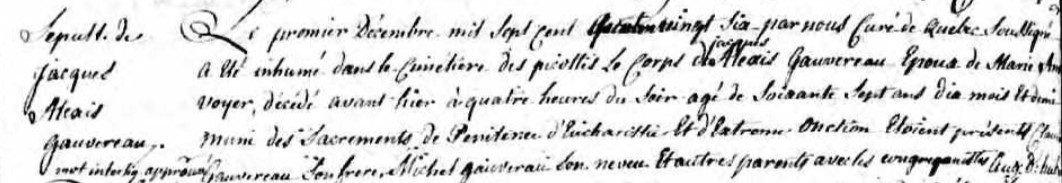 Sepult. de
jacques
Alexis
Gauvereau.
mot interlig. approuvé
Le premier Décembre mil sept cent quatrevingt six par nous Curé de Quebec Soussigné
jacques
a été inhumé dans le Cimetière des picottés le Corps de Alexis Gauvereau Epoux de Marie
voyer, décédé avant hier à quatre heures du Soir agé de Soixante Sept ans dix mois Et demi
muni des Sacrements de Penitence d'Eucharistie Et d'Extreme Onction Etoient présents
Gauvereau Son frere, Michel gauvereau Son neveu Et autres parents avec les congreganistes